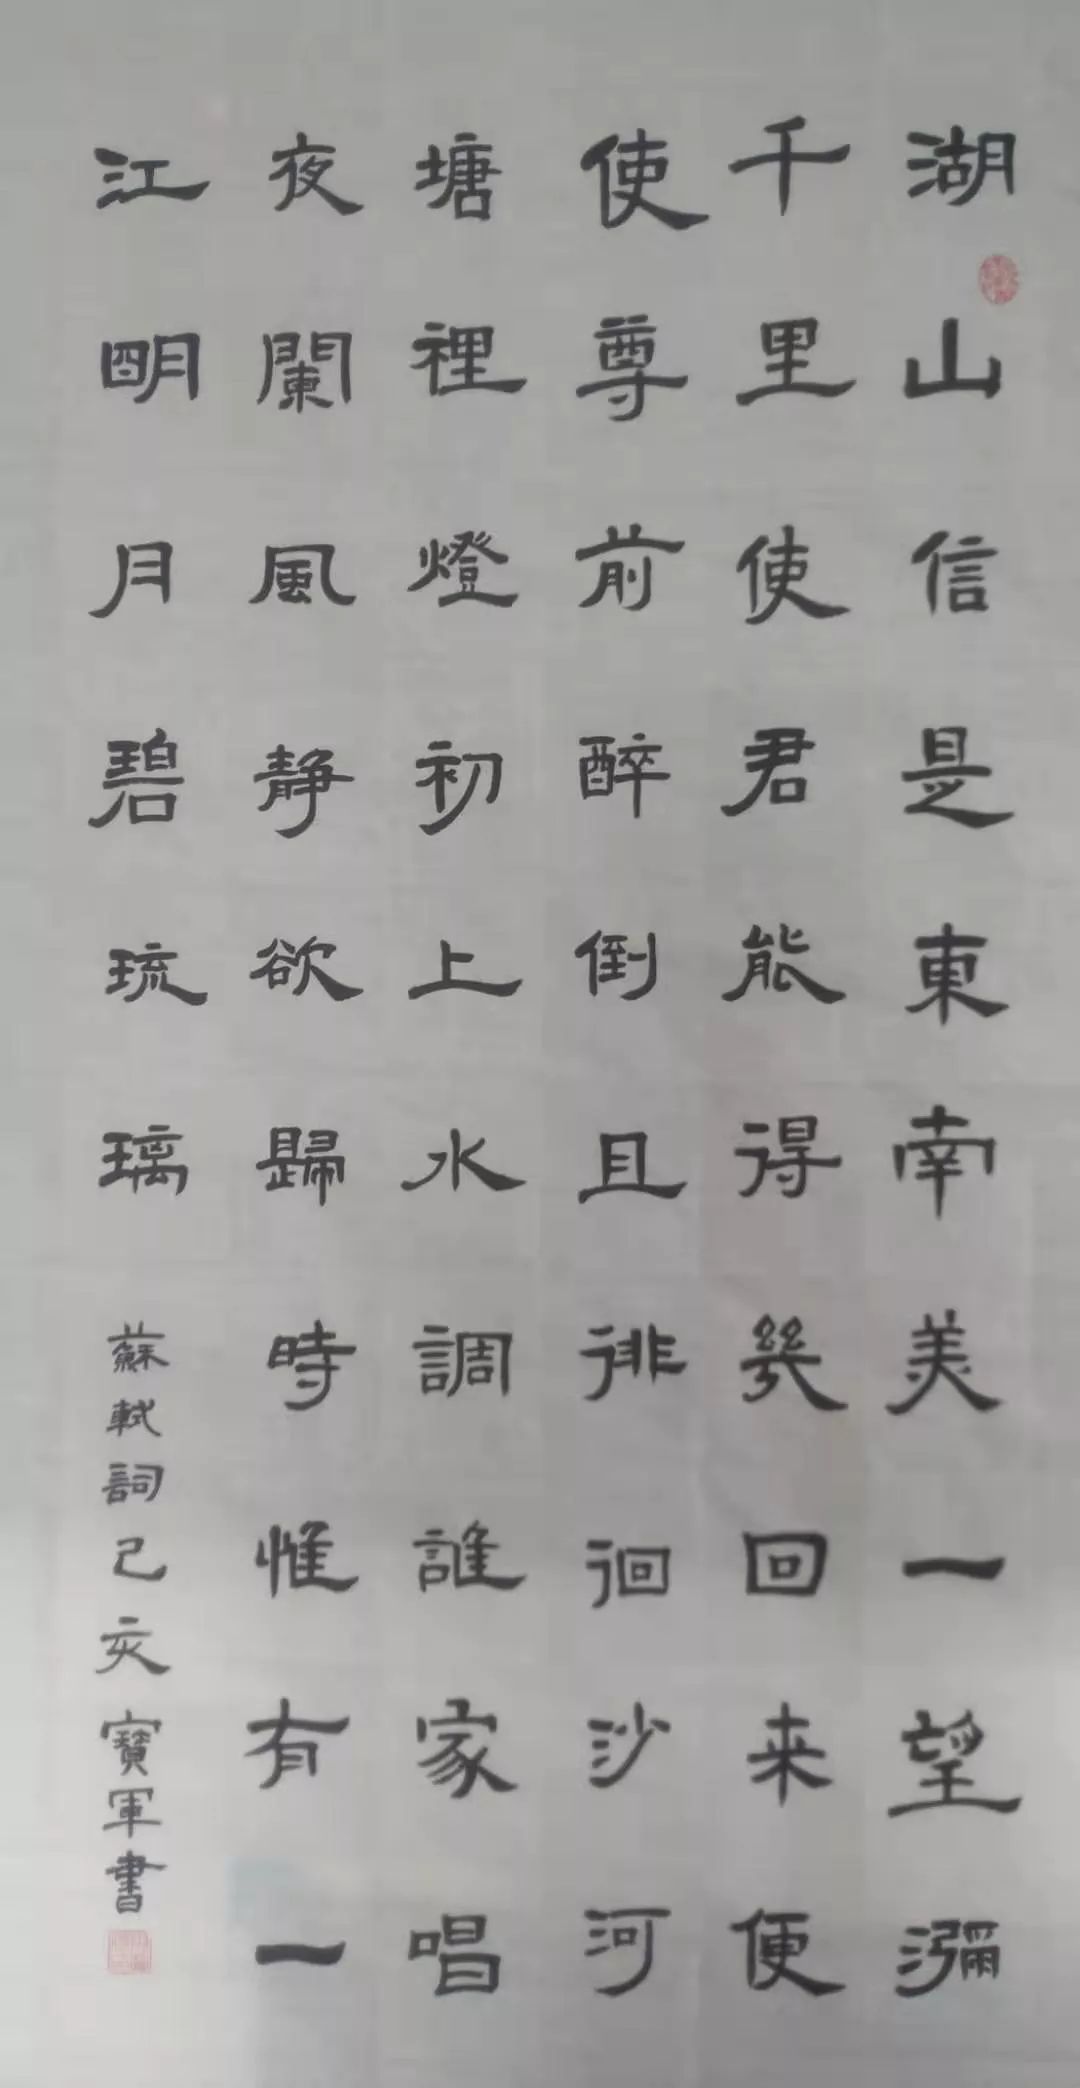 湖山信是東南美一望瀰
千里使君能得幾回来便
使尊前醉倒且徘徊沙河
塘裡燈初上水調誰家唱
夜闌風静欲歸時惟有一
江明月碧琉璃
蘇軾詞己亥寶軍書